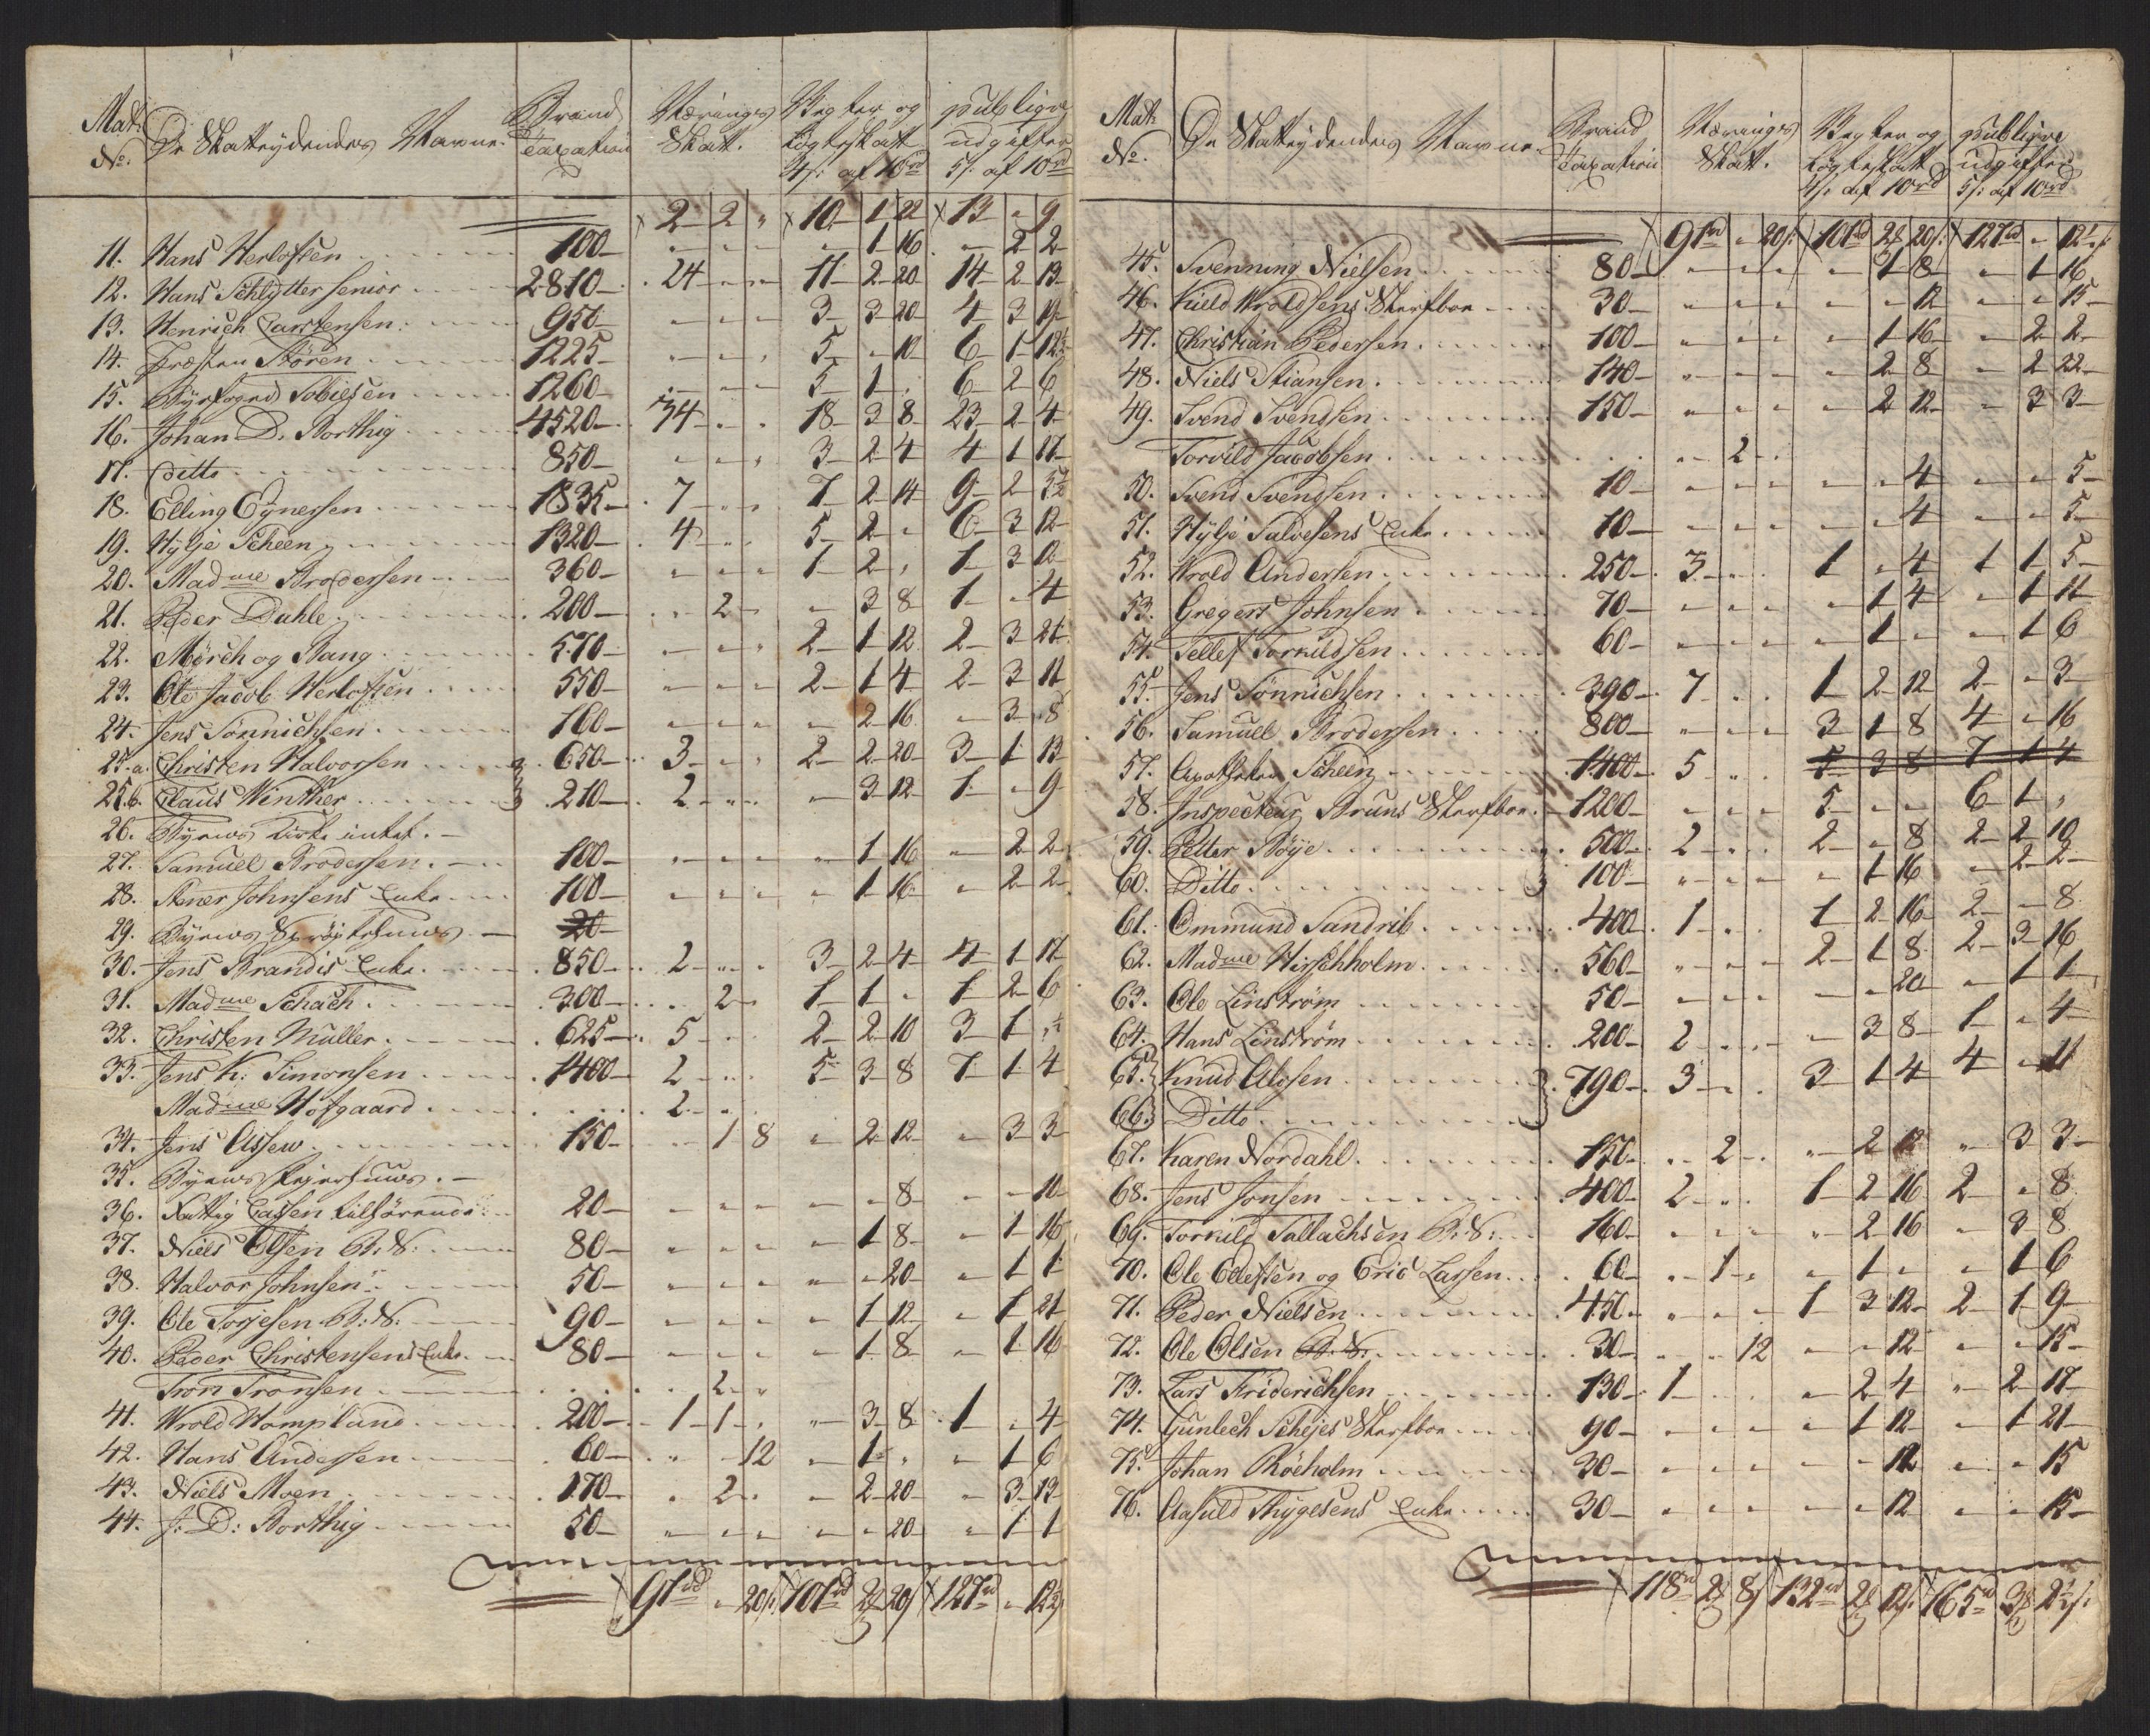 Mat: No. De Skatteydendes Navne. Brand Taxation Nærings Skatt. Vegter og Løgteskatt 4 s: af 10 rd publiqve udgifter 5 s: af 10 rd
2 2 " 10 1 22 13 " 9
11. Hans Herlofsen 100 - - - - 1 16 - 2 2
12. Hans Schlytter senior 2810 24 - - 11 2 20 14 2 13
13. Henrich Carstensen 950 - - - 3 3 20 4 3 19
14. Præsten Stören 1225 - - - 5 - 10 6 1 12½
15. Byefoged Tobiesen 1260 - - - 5 1 - 6 2 6
16. Johan D. Borthig 4520 34 - - 18 3 8 23 2 4
17. Ditto 850 - - - 3 2 4 4 1 17
18. Elling Eÿnersen 1835 7 - - 7 2 14 9 2 5½
19. Hylje Scheen 1320 4 - - 5 2 - 6 3 12
20. Madme Brodersen 360 - - - 1 2 - 1 3 12
21. Peder Dahle 200 - 2 - - 3 8 1 - 4
22. Mörch og Bang 570 - - - 2 1 12 2 3 21
23. Ole Jacob Herlofsen 550 - - - 2 1 4 2 3 11
24. Jens Sönnichsen 160 - - - - 2 16 - 3 8
25.a. Christen Halvorsen 650 3 - - 2 2 20 3 1 13
25.b. Claus Winther 210 2 - - - 3 12 1 - 9
26. Byens Kirke intet.
27. Samuel Brodersen 100 - - - - 1 16 - 2 2
28. Stener Johnsens Enke 100 - - - - 1 16 - 2 2
29. Byens Sprøytehuus 20
30. Jens Brandis Enke 850 2 - - 3 2 4 4 1 17
31. Madme Schach 300 - 2 - 1 1 - 1 2 6
32. Christen Müller 625 5 - - 2 2 10 3 1 ½
33. Jens K: Simonsen 1400 2 - - 5 3 8 7 1 4
Madme Hofgaard 2 - -
34. Jens Assew 150 - 1 8 - 2 12 - 3 3
35. Byens Slejerhuus.
36. Lassen tilhörende 20 - - - - - 8 - - 10
37. Niels Olsen B: S: 80 - - - - 1 8 - 1 16
38. Halvor Johnsen 50 - - - - - 20 - 1 1
39. Ole Torjesen B: S: 90 - - - - 1 12 - 1 21
40. Peder Christensens Enke 80 - - - - 1 8 - 1 16
Tron Tronsen - 2 -
41. Wrold Hompland 200 1 1 - - 3 8 1 - 4
42. Hans Andersen 60 - - 12 - 1 - - 1 6
43. Niels Moen 170 - 2 - - 2 20 - 3 13
44. J: D: Borthig 50 - - - - - 20 - 1 1
91 rd - 20 s: 101 rd 2 20 s 127 rd - 12½ s
Mat: No. De Skatteydendes Navne. Brand Taxation Nærings Skatt. Vegter og Løgteskatt 4 s: af 10 rd publiqve udgifter 5 s: af 10 rd
91 rd - 20 s: 101 rd 2 20 s: 127 rd - 12½ s:
45. Svenning Nielsen 80 - - - - 1 8 - 1 16
46. Kield Wroldsens Sterfboe 30 - - - - - 12 - - 15
47. Christian Pedersen 100 - - - - 1 16 - 2 2
48. Niels Stiansen 140 - - - - 2 8 - 2 22
49. Svend Svendsen 150 - - - - 2 12 - 3 3
Torvild Jacobsen - 2 -
50. Svend Svendsen 10 - - - - - 4 - - 5
51. Hylje Salvesens Enke 10 - - - - - 4 - - 5
52. Wrold Andersen 250 3 - - 1 - 4 1 1 5
53. Gregers Johnsen 70 - - - - 1 4 - 1 11
54. Tellef Torkildsen 60 - - - - 1 - - 1 6
55. Jens Sönnichsen 390 7 - - 1 2 12 2 - 3
56. Samuell Brodersen 800 - - - 3 1 8 4 - 16
57. Apotheker Scheen 1400 5 - - 5 3 8 7 1 4
58. Inspecteur Bruns Sterfboe 1200 - - - 5 - - 6 1 -
59. Petter Böÿe 500 2 - - 2 - 8 2 2 10
60. Ditto 100 - - - - 1 16 - 2 2
61. Ommund Sandrib 400 1 - - 1 2 16 2 - 8
62. Madme Hirschholm 560 - - - 2 1 8 2 3 16
63. Ole Linström 50 - - - - - 20 - 1 1
64. Hans Linström 200 2 - - - 3 8 1 - 4
65. Knud Alosen 790 3 - - 3 1 4 4 - 11
66. Ditto
67. Karen Nordahl 150 - 2 - - 2 12 - 3 3
68. Jens Jonsen 400 2 - - 1 2 16 2 - 8
69. Torkild Tallachsen B: S: 160 - - - - 2 16 - 3 8
70. Ole Ellefsen og Eric Lassen 60 - 1 - - 1 - - 1 6
71. Peder Nielsen 450 - - - 1 3 12 2 1 9
72. Ole Olsen B. S. 30 - - 12 - - 12 - - 15
73. Lars Friderichsen 130 1 - - - 2 4 - 2 17
74. Gunlech Schejes Sterfboe 90 - - - - 1 12 - 1 21
75. Johan Röeholm 30 - - - - - 12 - - 15
76. Aasuld Thygesens Enke 30 - - - - - 12 - - 15
118 rd 2 8 s 132 rd 2 12 s: 165 rd 3 2½ s: